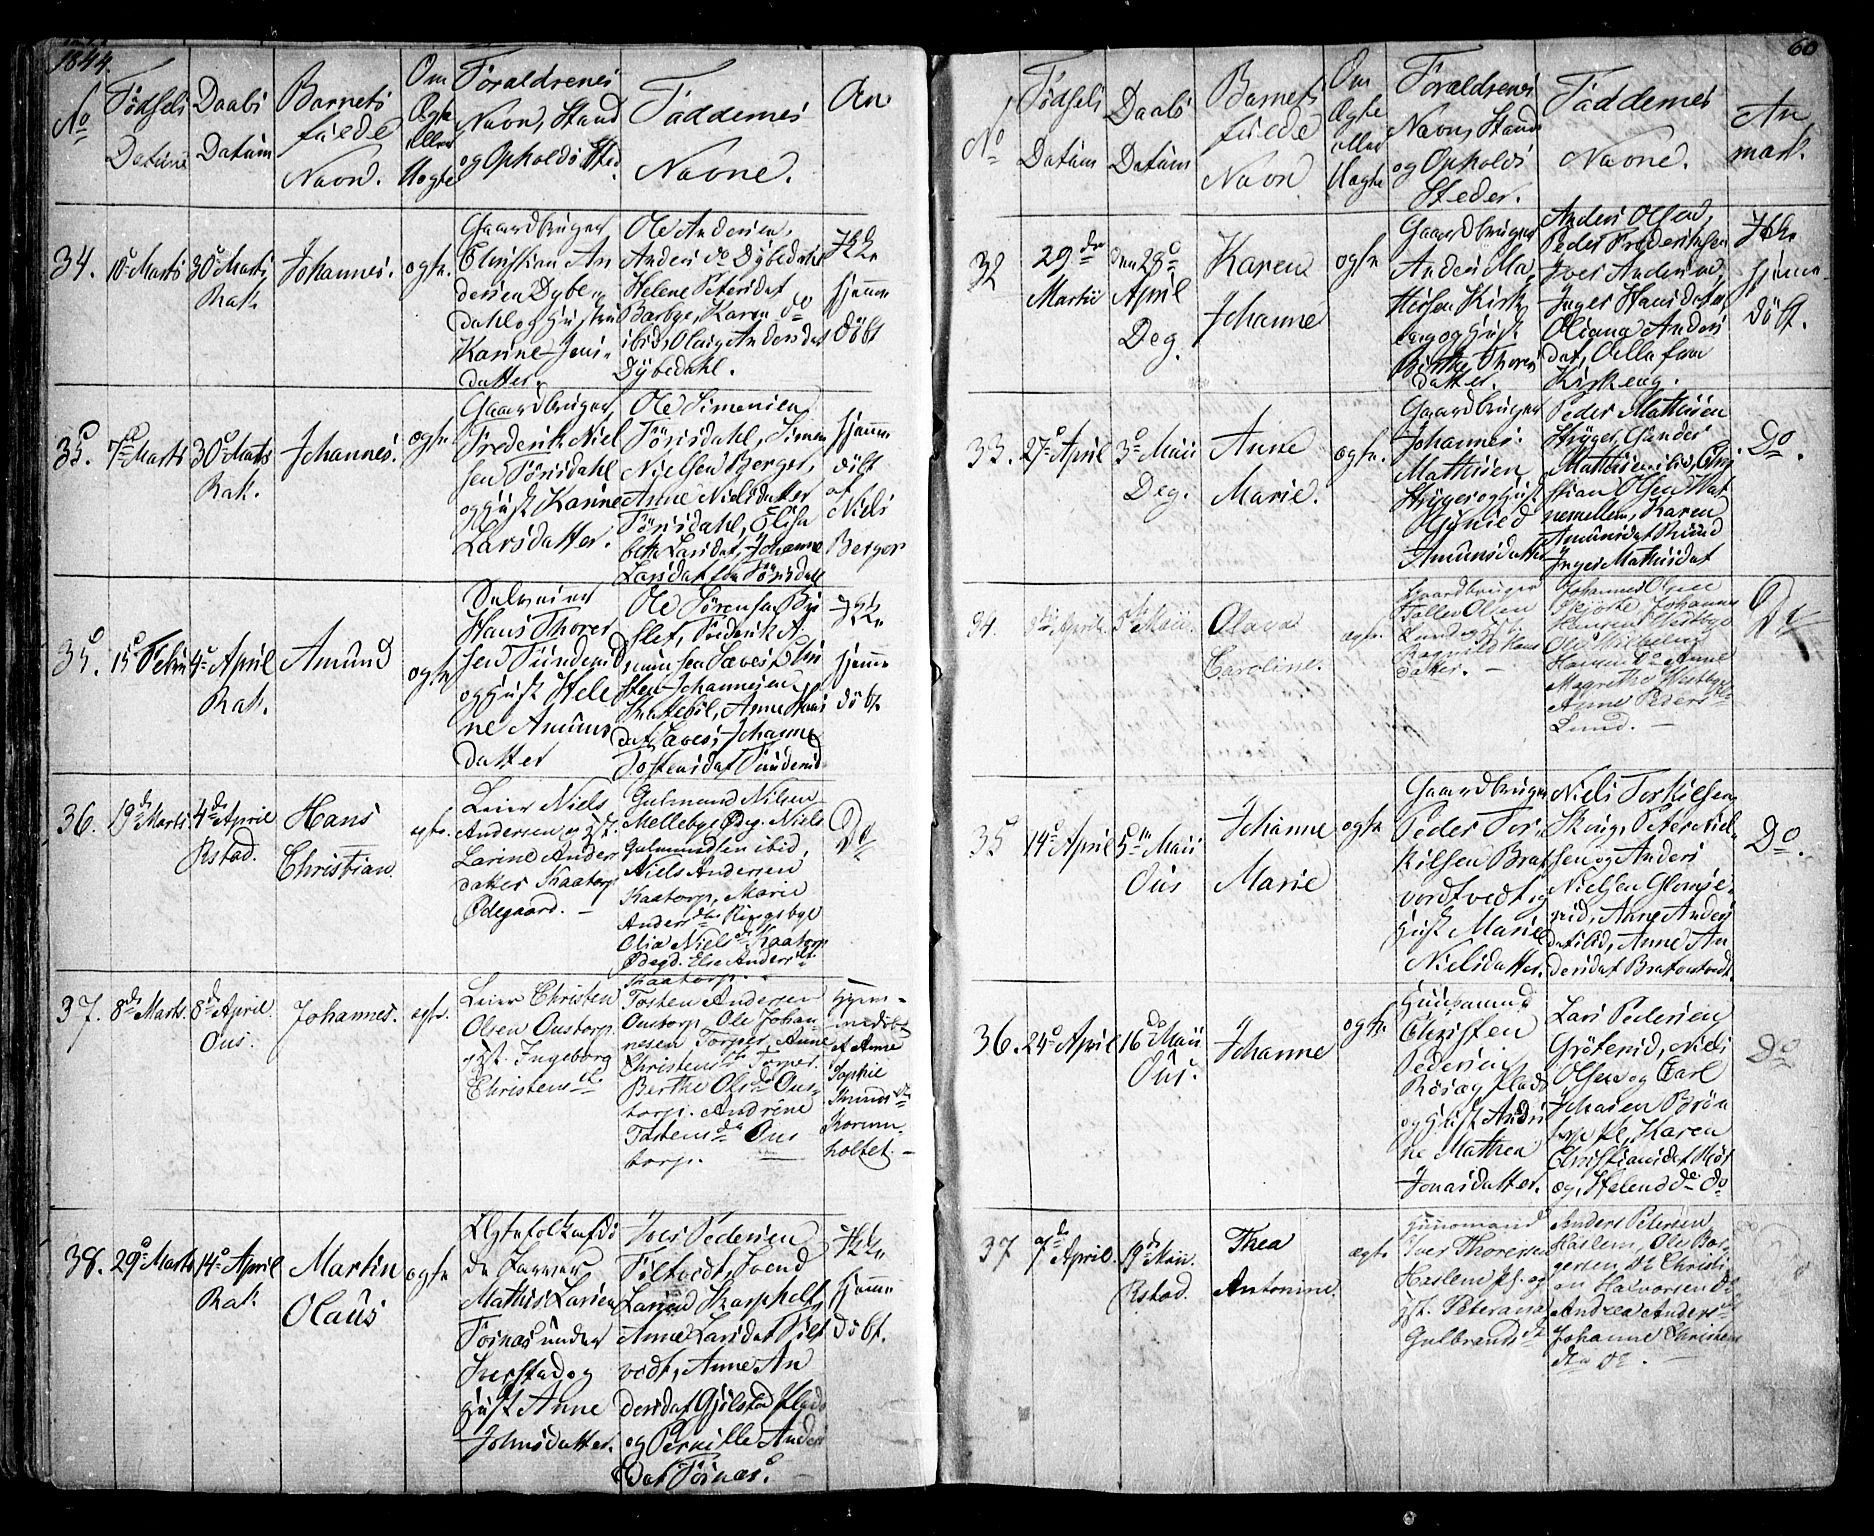 1844.
No
Fødsels
Datum
Daabs
Datum
Barnets
fulde
Navn.
Om
Ægte
eller
Uægte
Foraldrenes
Navn, Stand
og Opholds Sted.
Faddernes
Navne.
An
34.
10de Marts
30te Marts
Rak.
Johannes.
ægte.
Gaardbruger
Christian An
dersen Dybe
dahl og Hustru
Karine Jens
datter.
Ole Andersen,
Anders do Dybedahl
Helene Petersdat
Barbye, Karen do
ibid, Olava Andersdat
Dybedahl.
Ikke
hjemme
døbt
35.
7de Marts
30te Marts
Rak.
Johannes.
ægte
Gaardbruger
Frederik Niel
sen Törisdahl
og Hust Karine
Larsdatter.
Ole Simensen
Törisdahl, Simen
Nielsen Berger,
Anne Nielsdatter
Törisdahl, Elisa
beth Larsdat, Johanne
Larsdat fra Törisdahl
hjemme
døbt
af
Niels
Berger
35.
15de Febr
4de April
Rak.
Amund
ægte
Hans Thorer
og Hust Hele
ne Amunds
datter
Ole Sørensen
Johannesen
Anne Hans
dat, Johanne
Tostensdat
Ikke
hjemme
døbt
36.
19de Marts
4de April
Rstad.
Hans
Christian
ægte.
Leier Niels
Andersen og Hst.
Larine Anders
datter Kaatorp
Ødegaard. –
Gulmund Nilsen
Mellebye Ødg. Niels
Gulmundsen ibid,
Niels Andersen
Kaatorp, Marie
Andersdtr Ringsbye
Olia Nielsdtr Kaatorp
Ødegd. Else Andersdt.
Kaatorp. –
Do
37.
8de Marts.
8de April
Ous.
Johannes.
ægte.
Leier Christen
Olsen Oustorp.
Hst. Ingeborg
Christensdtr
Tosten Andersen
Oustorp, Ole Johan-
nesen Torper, Anne
Christensdtr Torper.
Berthe Olsdtr Ous-
torp. Andrine
Tostensdtr Ous
torp.
Hjem-
medøbt
af Anne
Sophie
Knudsdtr
Korum-
holtet. –
38.
29de Marts
14de April
Rak
Martin
Olaus
ægte
Mathis Larsen
Törnæs under
Iverstad og
Hust Anne
Johnsdatter.
Iver Pedersen
Filtvedt, Svend
Larsen Karpholt,
Anne Larsdat Filt
vedt, Anne An
dersdat Gjölstad Plads
og Pernille Anders
dat Törnæs.
Ikke
hjemme
døbt.
60
No
Fødsels
Datum
Daabs
Datum
Barnets
fulde
Navn
Om
Ægte
eller
Uægte
Foraldrenes
Navn, Stand
og Opholds
Steder.
Faddernes
Navne.
An
mærk.
32
29de
Martii
den 28de
April
Deg.
Karen
Johanne
ægte
Gaardbruger
Anders Ma
thisen Kirk
eng og Hust.
Birthe Thores
datter.
Anders Olsen,
Peder Frederiksen
Iver Andersen,
Inger Hansdatter
Oliana Anders
dat, Alle fra
Kirkeng.
Ikke
hjemme
døbt.
33.
27de April
3de Maii
Deg.
Anne
Marie.
ægte.
Gaardbruger
Johannes
Mathisen
Stryger og Hust
Gunild
Amundsdatter
Peder Mathisen
Stryger, Gunder
Mathisen ibid, Chri
stian Olsen
nemellem, Karen
Amundsdat
Inger Mathisdat
Do.
34.
April.
5te Maii.
Olava
Caroline.
ægte.
Gaardbruger
Tollev Olsen
Lund og Hst
Ragnild Hans
datter. –
Johannes Olsen
Johannes
Hansen Westbye
Ole Wilhelm
Hansen do Anne
Magrethe Westbye
Anne Pedersdtr
Lund. –
Do
35
14de April
5te Maii
Ous
Johanne
Marie
ægte
Gaardbruger
Peder Tor
kilsen Brat
vordtvedt og
Hust Marie
Nielsdatter.
Niels Torkilsen
Skoug, Peter Niel
sen og Anders
Nielsen Glomse
rud, Anne Anders
dat ibid, Anne An
dersdat
Do.
36.
24de April
16de Maii
Ous.
Johanne
ægte.
Huusmand
Christen
Pedersen
Rösæg Plads
og Hust Andri
ne Mathea
Jonasdatter.
Lars Pedersen
Gröterud, Niels
Olsen og Carl
Johansen
Karen
Christiansdat Rös
æg, Helene do do
Do
37
7de April.
19de Maii.
Rstad.
Thea
Antonine.
ægte
Huusmand
Iver Thoresen
Haslem pl. og
Hst. Peterana
Gulbrandsdtr
Anders Petersen
Haslem, Ole Bor
gersen do Christi
an Halvorsen do
Andrea Andersdtr
Johanne Christens
dtr do. –